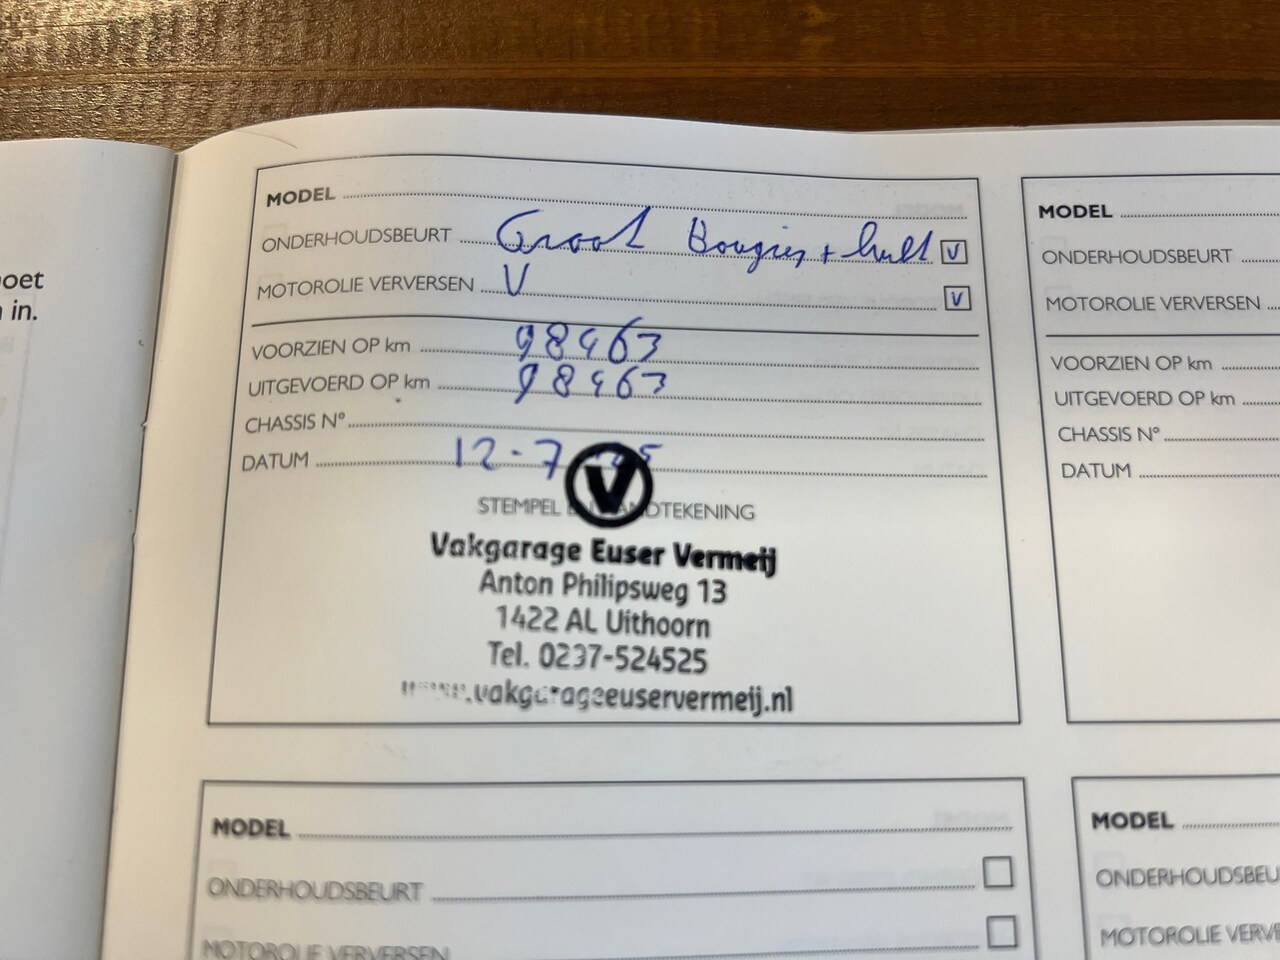 oet
in.
MODEL
ONDERHOUDSBEURT Groot Bougies + lucht V
MOTOROLIE VERVERSEN V V
VOORZIEN OP km 98463
UITGEVOERD OP km 98463
CHASSIS N°
DATUM 12-7
STEMPEL EN HANDTEKENING
V
Vakgarage Euser Vermeij
Anton Philipsweg 13
1422 AL Uithoorn
Tel. 0297-524525
www.vakgarageeuservermeij.nl
MODEL
ONDERHOUDSBEURT
MOTOROLIE VERVERSEN
VOORZIEN OP km
UITGEVOERD OP km
CHASSIS N°
DATUM
MODEL
ONDERHOUDSBEURT
MOTOROLIE VERVERSEN
MODEL
ONDERHOUDSBEU
MOTOROLIE VERVE